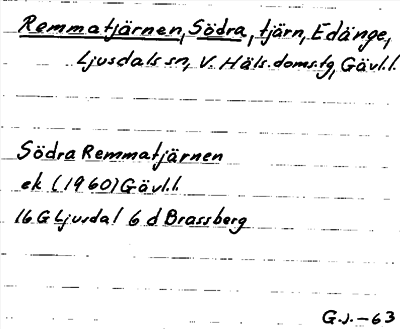 Remmatjärnen, Södra, tjärn, Edänge,
Ljusdals sn, V. Häls. doms.tg, Gävl.l.
Södra Remmatjärnen
ek (1960) Gävl.l.
16 G Ljusdal 6 d Brassberg
G.J.-63